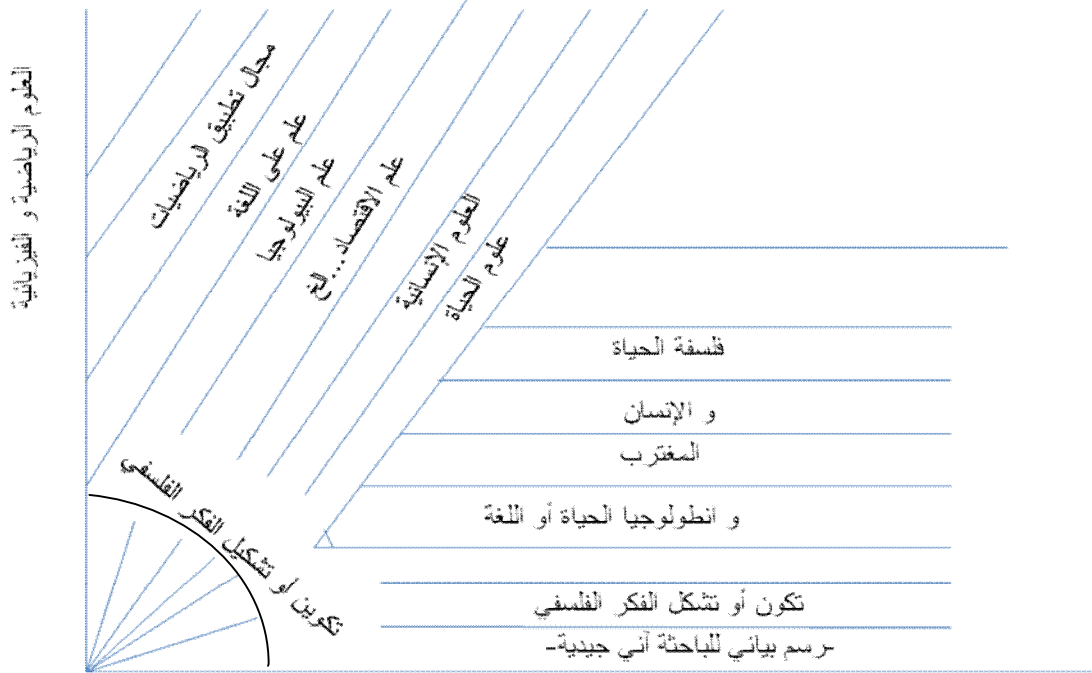 العلوم الرياضية و الفيزيائية
مجال تطبيق الرياضيات
علم على اللغة
علم البيولوجيا
علم الاقتصاد...لخ
العلوم الإنسانية
علوم الحياة
فلسفة الحياة
و الإنسان
المغترب
و انطولوجيا الحياة أو اللغة
تكوين أو تشكيل الفكر الفلسفي
تكون أو تشكل الفكر الفلسفي
-رسم بياني للباحثة آني جيدية-